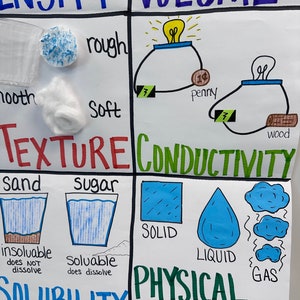 rough
smooth
soft
TEXTURE
penny
wood
CONDUCTIVITY
sand
sugar
insoluable
DOES NOT
DISSOLVE
soluable
does dissolve
SOLID
LIQUID
GAS
PHYSICAL